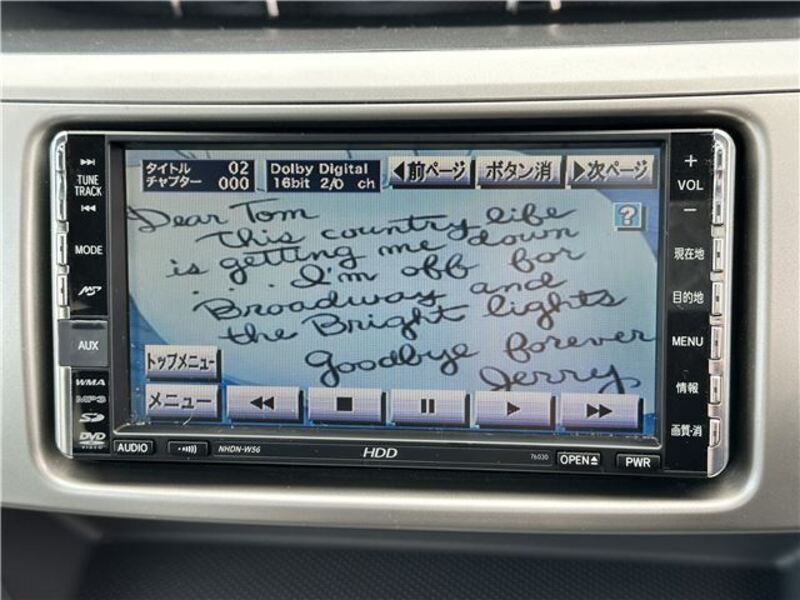 タイトル 02
チャプター 000
Dolby Digital
16bit 2/0 ch
◀前ページ
ボタン消
▶次ページ
?
Dear Tom
this country life
is getting me down
. . . I'm off for
Broadway and
the Bright lights
Goodbye forever
Jerry.
トップメニュー
メニュー
TUNE
TRACK
MODE
AUX
WMA
MP3
SD
DVD
VIDEO
AUDIO
NHDN-W56
HDD
76030
OPEN
PWR
+
VOL
−
現在地
目的地
MENU
情報
画質・消